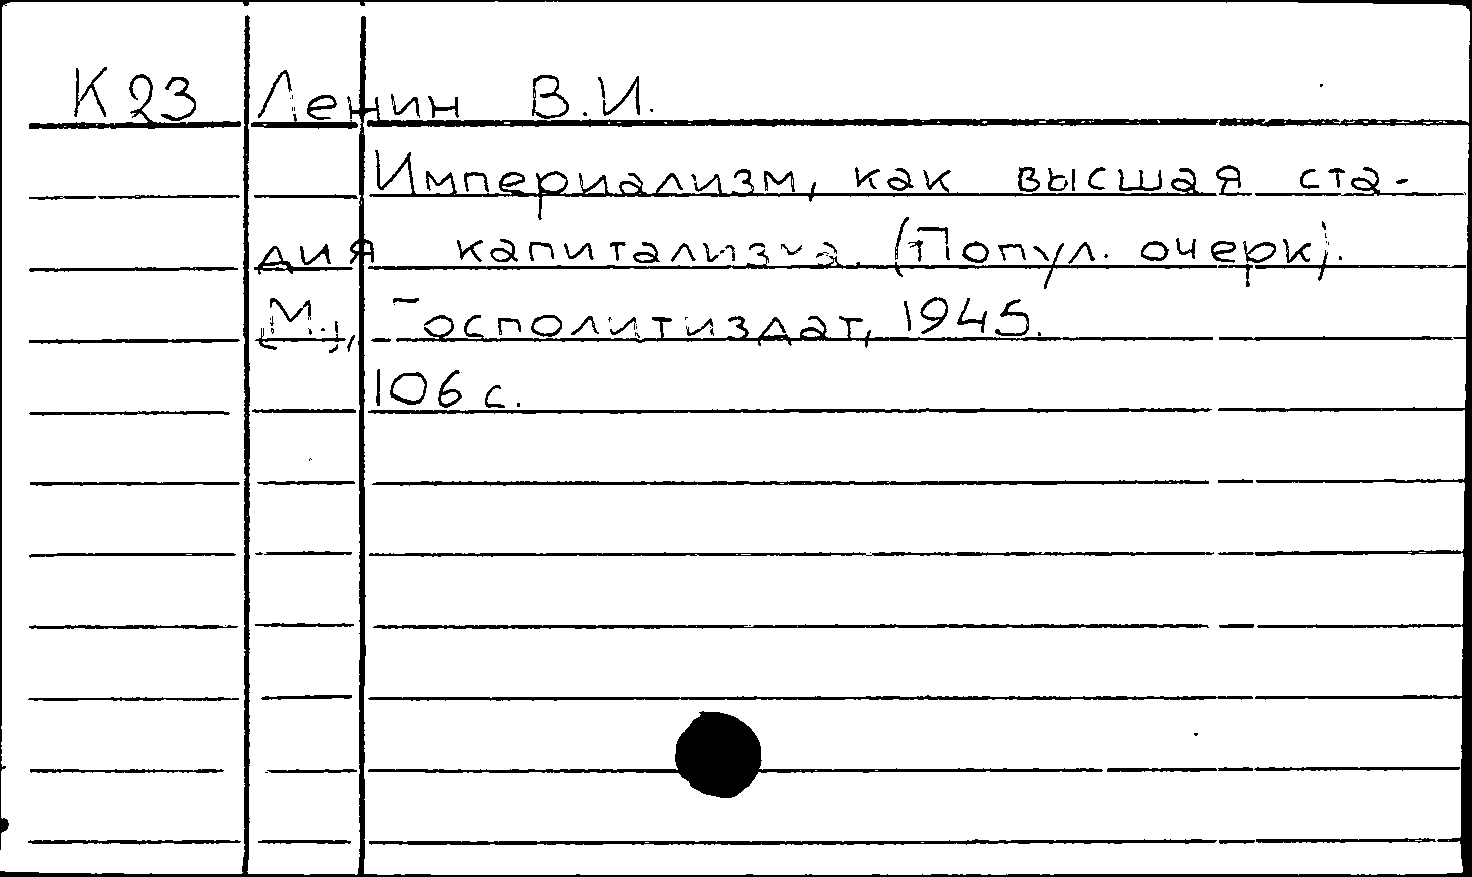 К23 Ленин В.И.
Империализм, как высшая ста-
дия капитализма. (Попул. очерк).
[М.], Госполитиздат, 1945.
106 с.